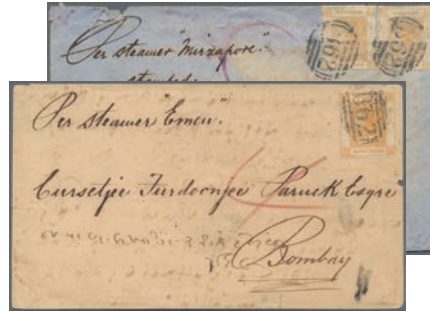 Per steamer "Mirzapore".
stamped.
B62
B62
Per steamer "Emeu".
B62
Cursetjee Furdoonjee Paruck Esqre
Bombay